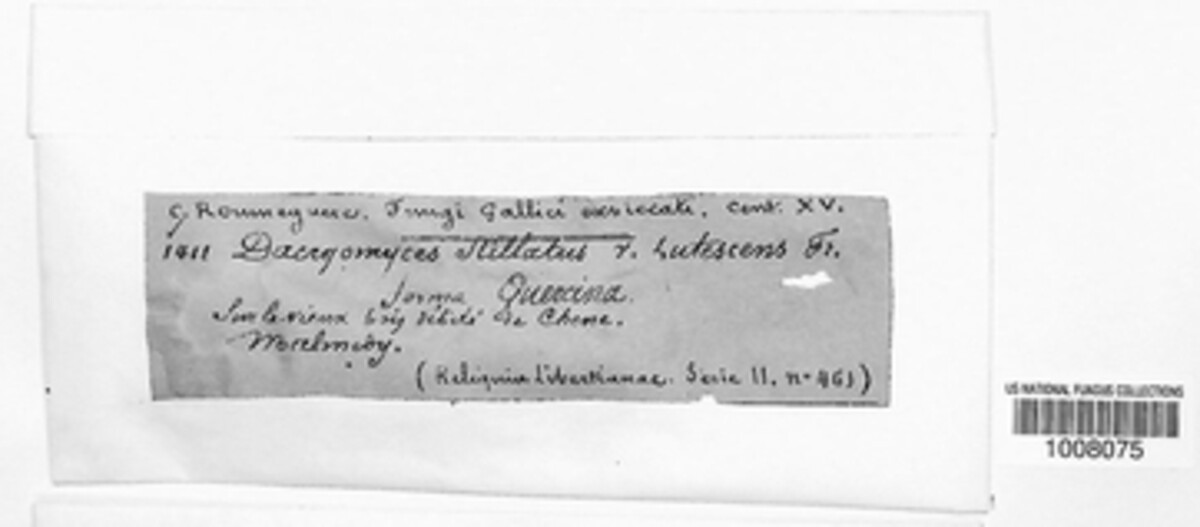 C. Roumeguere. Fungi Gallici exsiccati. cent. XV.
1411 Dacryomyces stillatus v. Lutescens Fr.
forma Quercina.
Sur le vieux bois débité de Chene.
Malmedy.
(Reliquiae Libertianae. Serie II. n° 461)
US NATIONAL FUNGUS COLLECTIONS
1008075